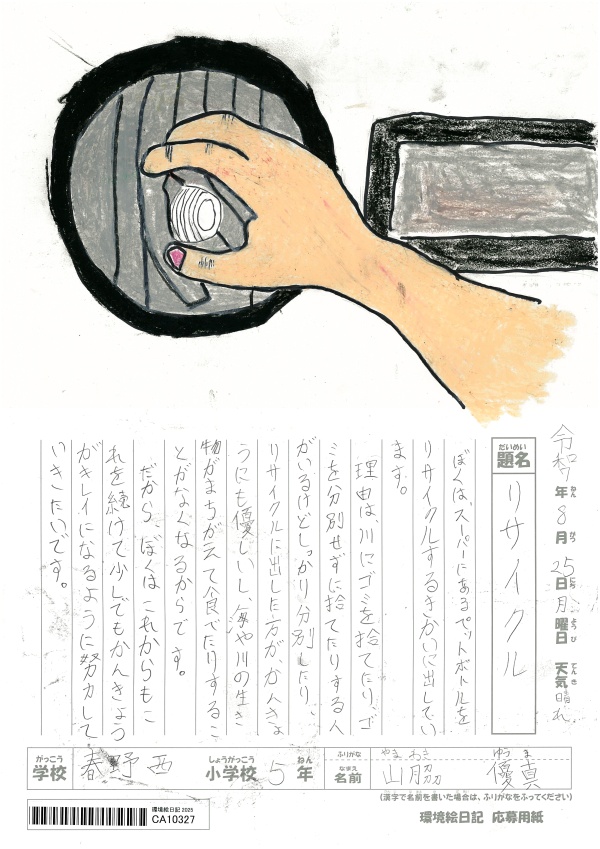 令和7年8月25日月曜日 天気晴れ
題名 リサイクル
ぼくは、スーパーにあるペットボトルを
リサイクルするきかいに出してい
ます。
理由は、川にゴミを捨てたり、ゴ
ミを分別せずに捨てたりする人
がいるけどしっかり分別したり、
リサイクルに出した方が、かんきょ
うにも優しいし、海や川の生き
物がまちがえて食べたりするこ
とがなくなるからです。
だから ぼくは これからもこ
れを続けて少しでもかんきょう
がキレイになるように努力して
いきたいです。
がっこう 学校 春野西 しょうがっこう 小学校 5 ねん 年
ふりがな やま おさ ゆう ま
なまえ 名前 山 優真
(漢字で名前を書いた場合は、ふりがなをふってください)
環境絵日記 2025
CA10327
環境絵日記 応募用紙